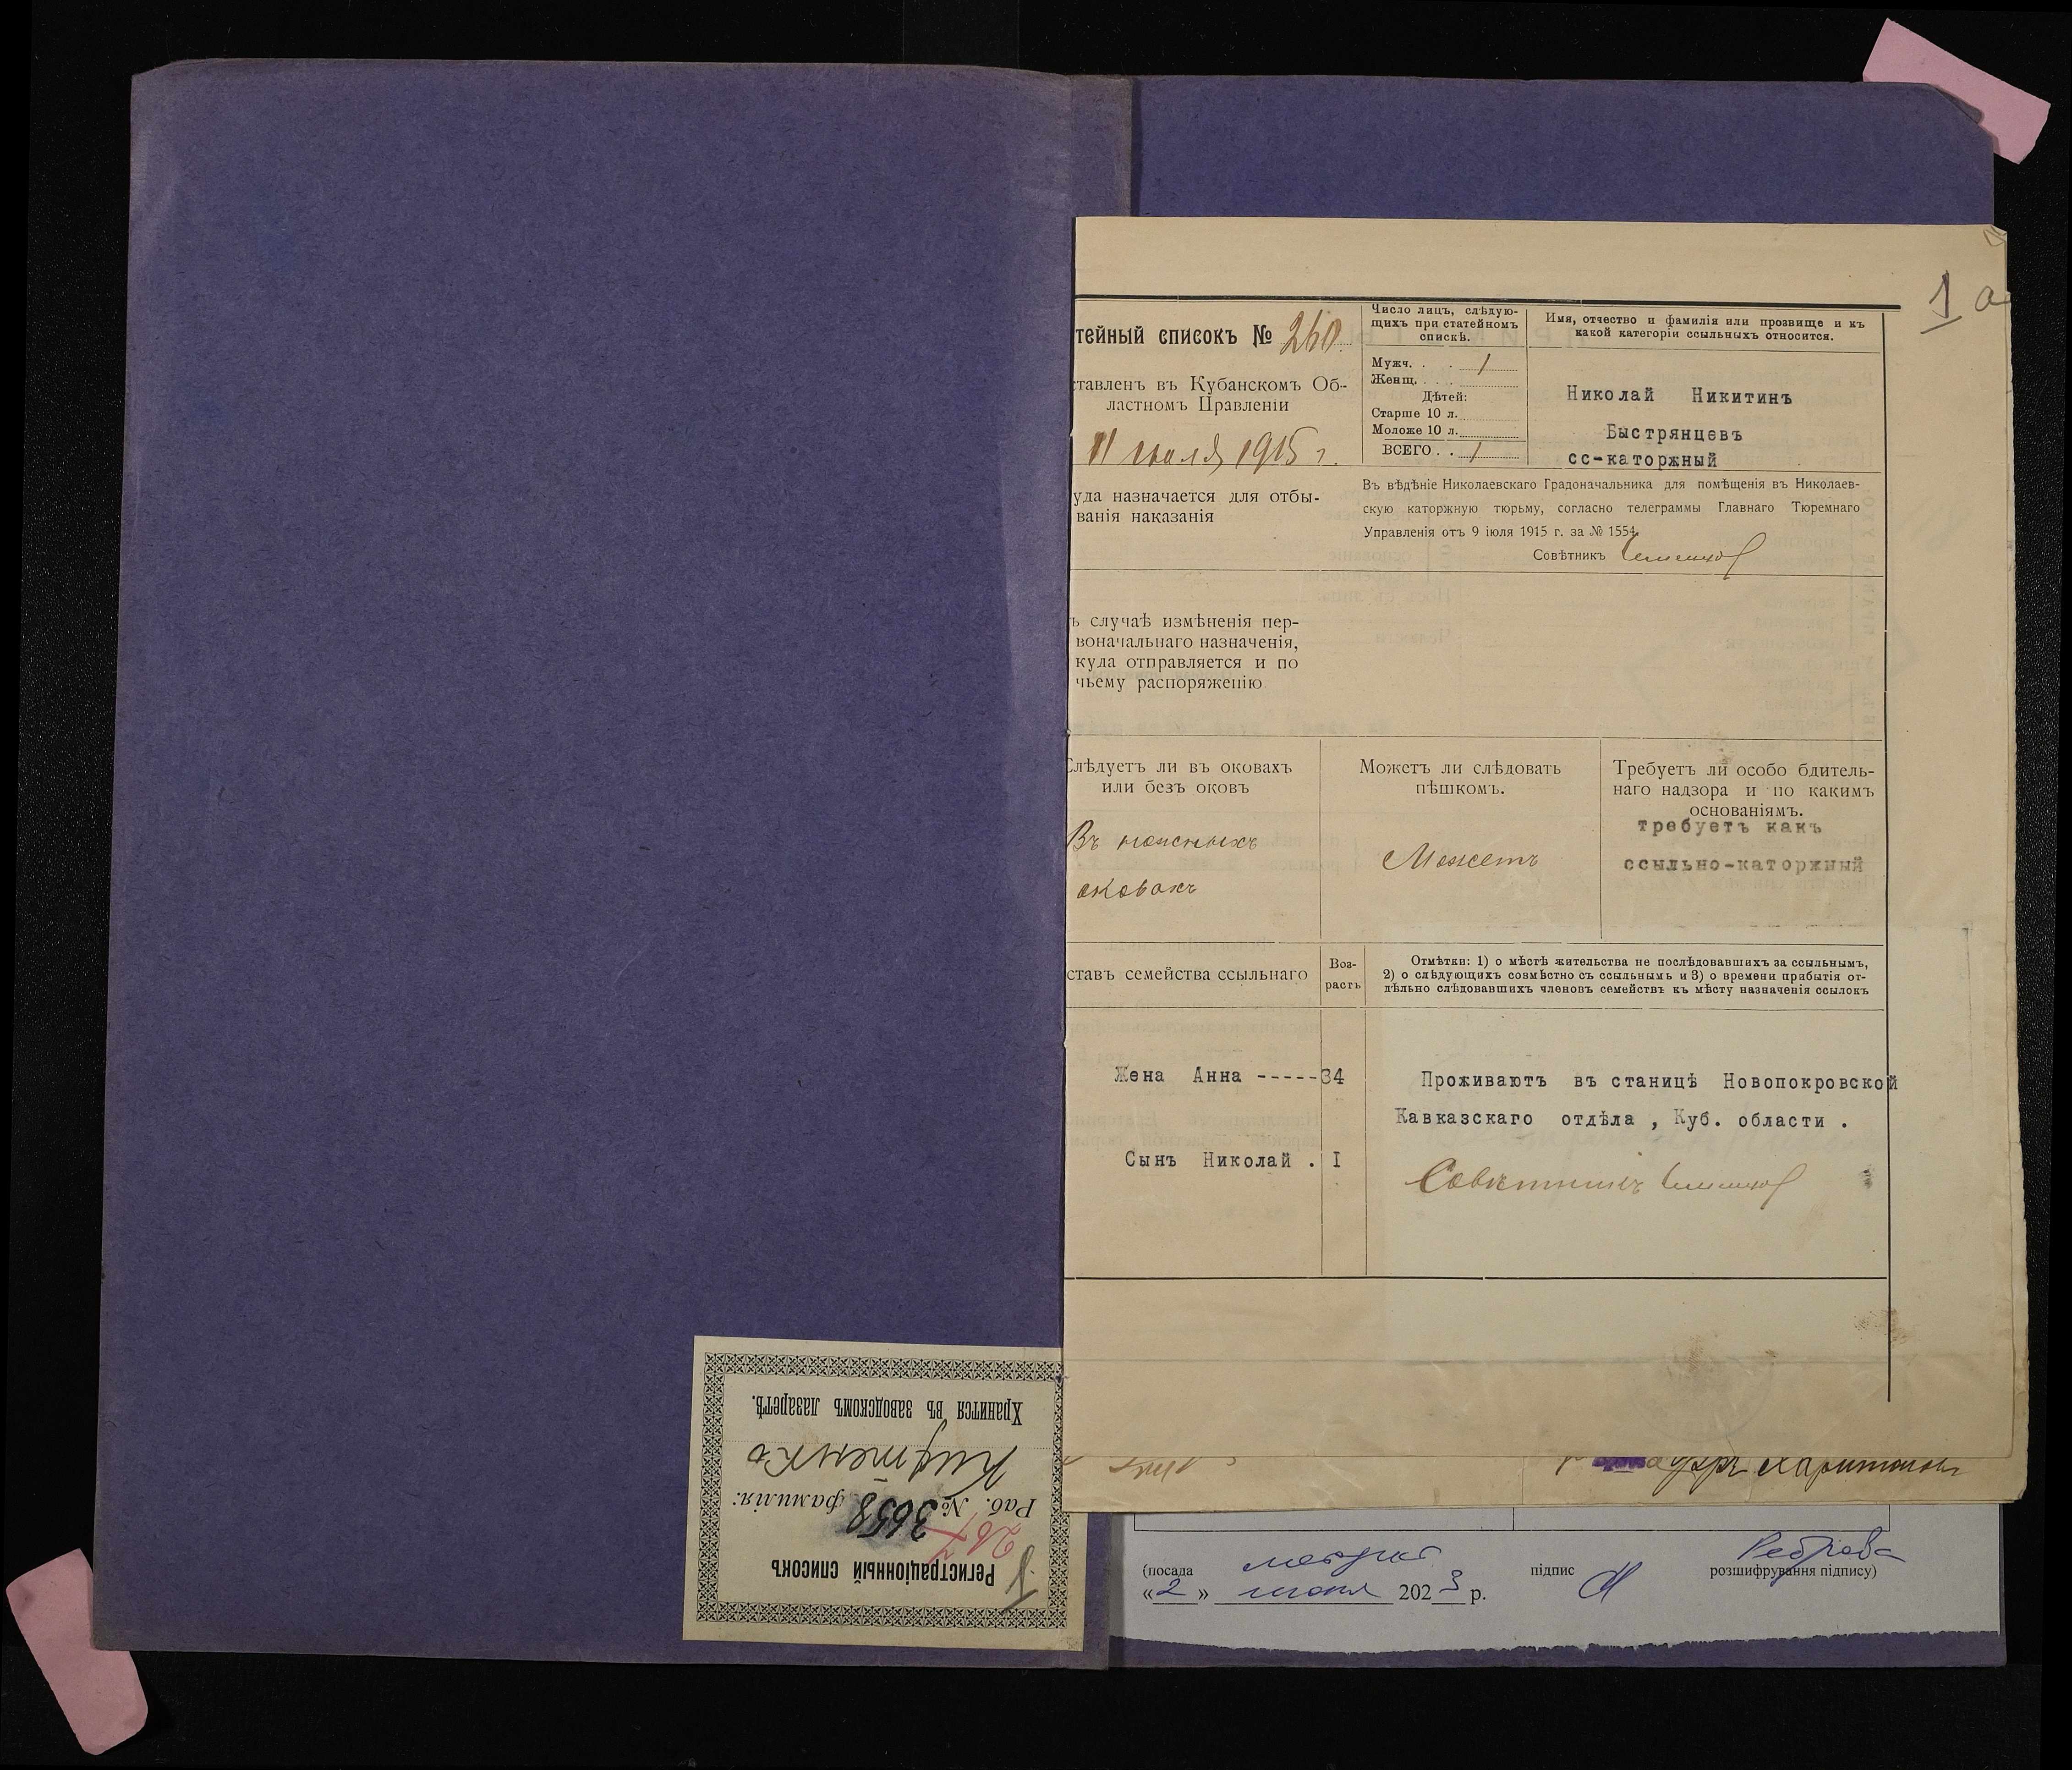 1 а
тейный списокъ № 260.
ставленъ въ Кубанскомъ Об-
ластномъ Правленіи
11 іюля 1915 г.
Число лицъ, слѣдую-
щихъ при статейномъ
спискѣ.
Мужч. . . 1
Женщ. . . .
Дѣтей:
Старше 10 л.
Моложе 10 л.
ВСЕГО . . 1
Имя, отчество и фамилія или прозвище и къ
какой категоріи ссыльныхъ относится.
Николай Никитинъ
Быстрянцевъ
сс-каторжный
уда назначается для отбы-
ванія наказанія
Въ вѣдѣніе Николаевскаго Градоначальника для помѣщенія въ Николаев-
скую каторжную тюрьму, согласно телеграммы Главнаго Тюремнаго
Управленія отъ 9 іюля 1915 г. за № 1554.
Совѣтникъ
ъ случаѣ измѣненія пер-
воначальнаго назначенія,
куда отправляется и по
чьему распоряженію
Слѣдуетъ ли въ оковахъ
или безъ оковъ
Въ ножныхъ
оковахъ
Можетъ ли слѣдовать
пѣшкомъ.
Можетъ
Требуетъ ли особо бдитель-
наго надзора и по какимъ
основаніямъ.
требуетъ какъ
ссыльно-каторжный
ставъ семейства ссыльнаго
Воз-
растъ
Отмѣтки: 1) о мѣстѣ жительства не послѣдовавшихъ за ссыльнымъ,
2) о слѣдующихъ совмѣстно съ ссыльнымъ и 3) о времени прибытія от-
дѣльно слѣдовавшихъ членовъ семействъ къ мѣсту назначенія ссылокъ
Жена Анна -----34
Сынъ Николай . I
Проживаютъ въ станицѣ Новопокровской
Кавказскаго отдѣла , Куб. области .
Совѣтникъ
Харитоновъ
(посада
підпис
розшифрування підпису)
«2» июня 2023 р.
Регистраціонный списокъ
Раб. № 3658 фамилія:
Хранится въ заводскомъ лазаретѣ.